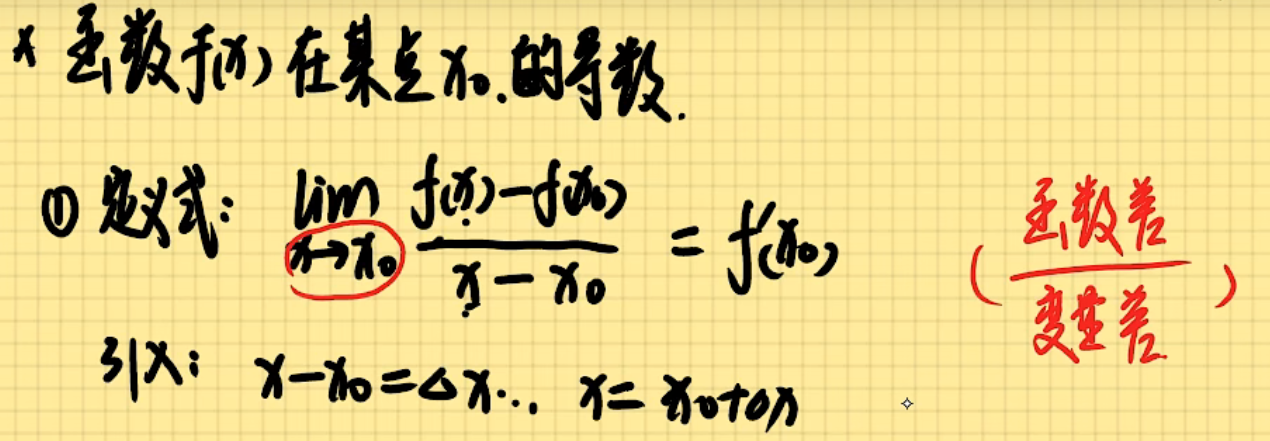 * 函数f(x)在某点x₀.的导数.
① 定义式: lim x→x₀ (f(x)-f(x₀))/(x-x₀) = f'(x₀) (函数差/变量差)
引入: x-x₀=△x... x=x₀+△x